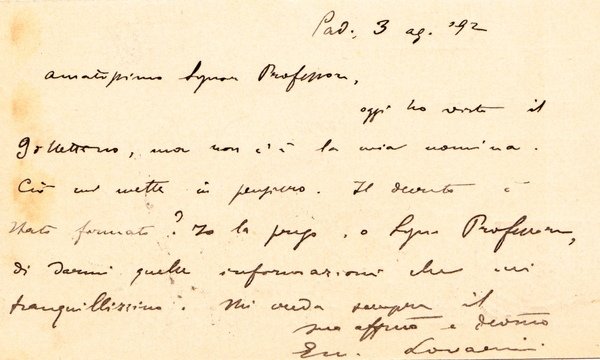 Pad., 3 ag. '92
amatissimo Signor Professore,
oggi ho visto il
Bollettino, ma non c'è la mia nomina.
Ciò mi mette in pensiero. Il decreto è
stato firmato? Io la prego, o Signor Professore,
di darmi quelle informazioni che mi
tranquillizzino. Mi creda sempre il
suo affmo e devmo
Em. Lovarini